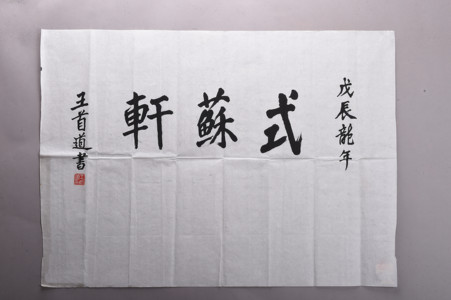 戊辰龍年
式蘇軒
王首道書